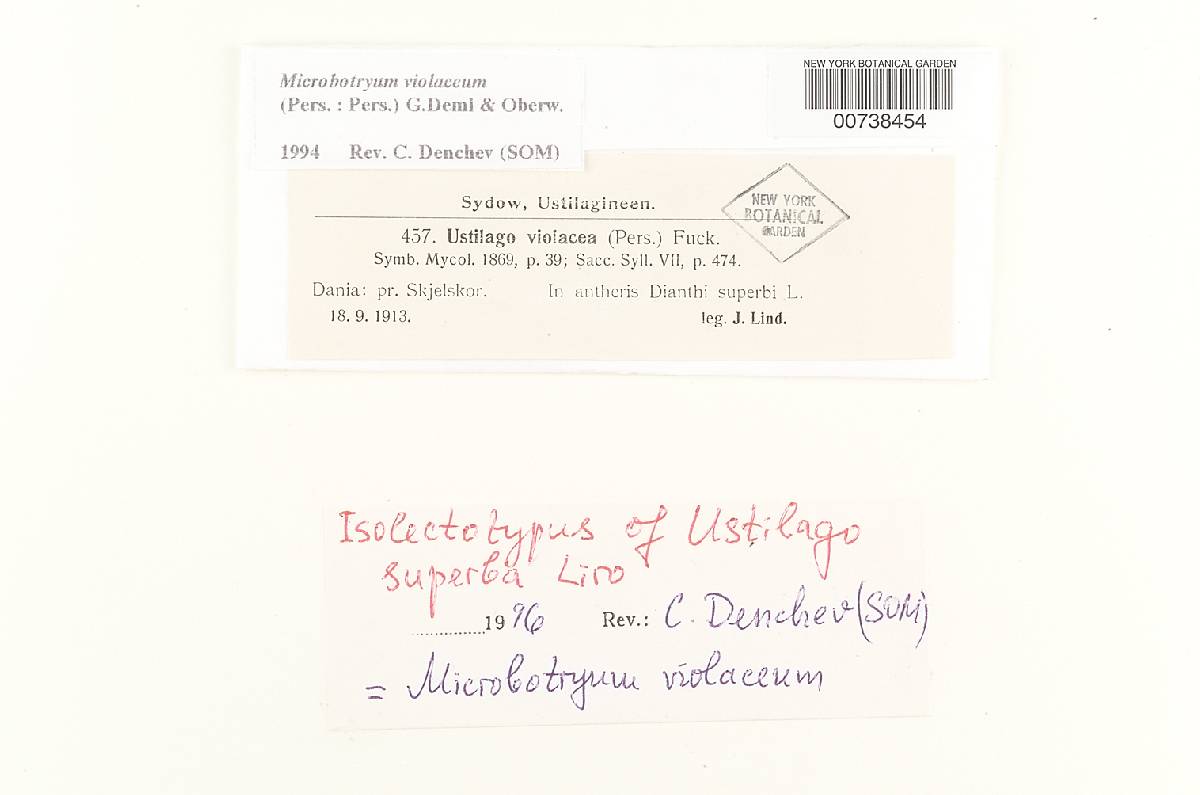 Microbotryum violaceum
(Pers. : Pers.) G.Deml & Oberw.
1994 Rev. C. Denchev (SOM)
NEW YORK BOTANICAL GARDEN
00738454
Sydow, Ustilagineen.
NEW YORK
BOTANICAL
GARDEN
457. Ustilago violacea (Pers.) Fuck.
Symb. Mycol. 1869, p. 39; Sacc. Syll. VII, p. 474.
Dania: pr. Skjelskor. In antheris Dianthi superbi L.
18. 9. 1913. leg. J. Lind.
Isolectotypus of Ustilago
superba Liro
1996 Rev.: C. Denchev (SOM)
= Microbotryum violaceum